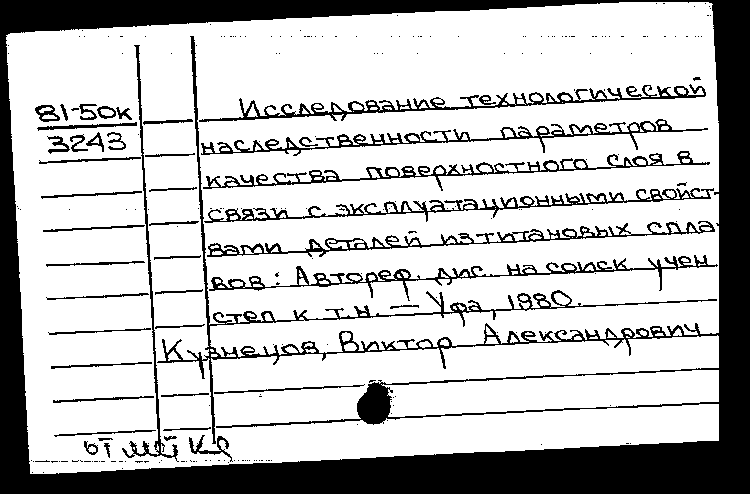 81-50к
3243
Исследование технологической
наследственности параметров
качества поверхностного слоя в
связи с эксплуатационными свойст-
вами деталей из титановых спла-
вов : Автореф. дис. на соиск учен
степ к т.н. — Уфа, 1980.
Кузнецов, Виктор Александрович